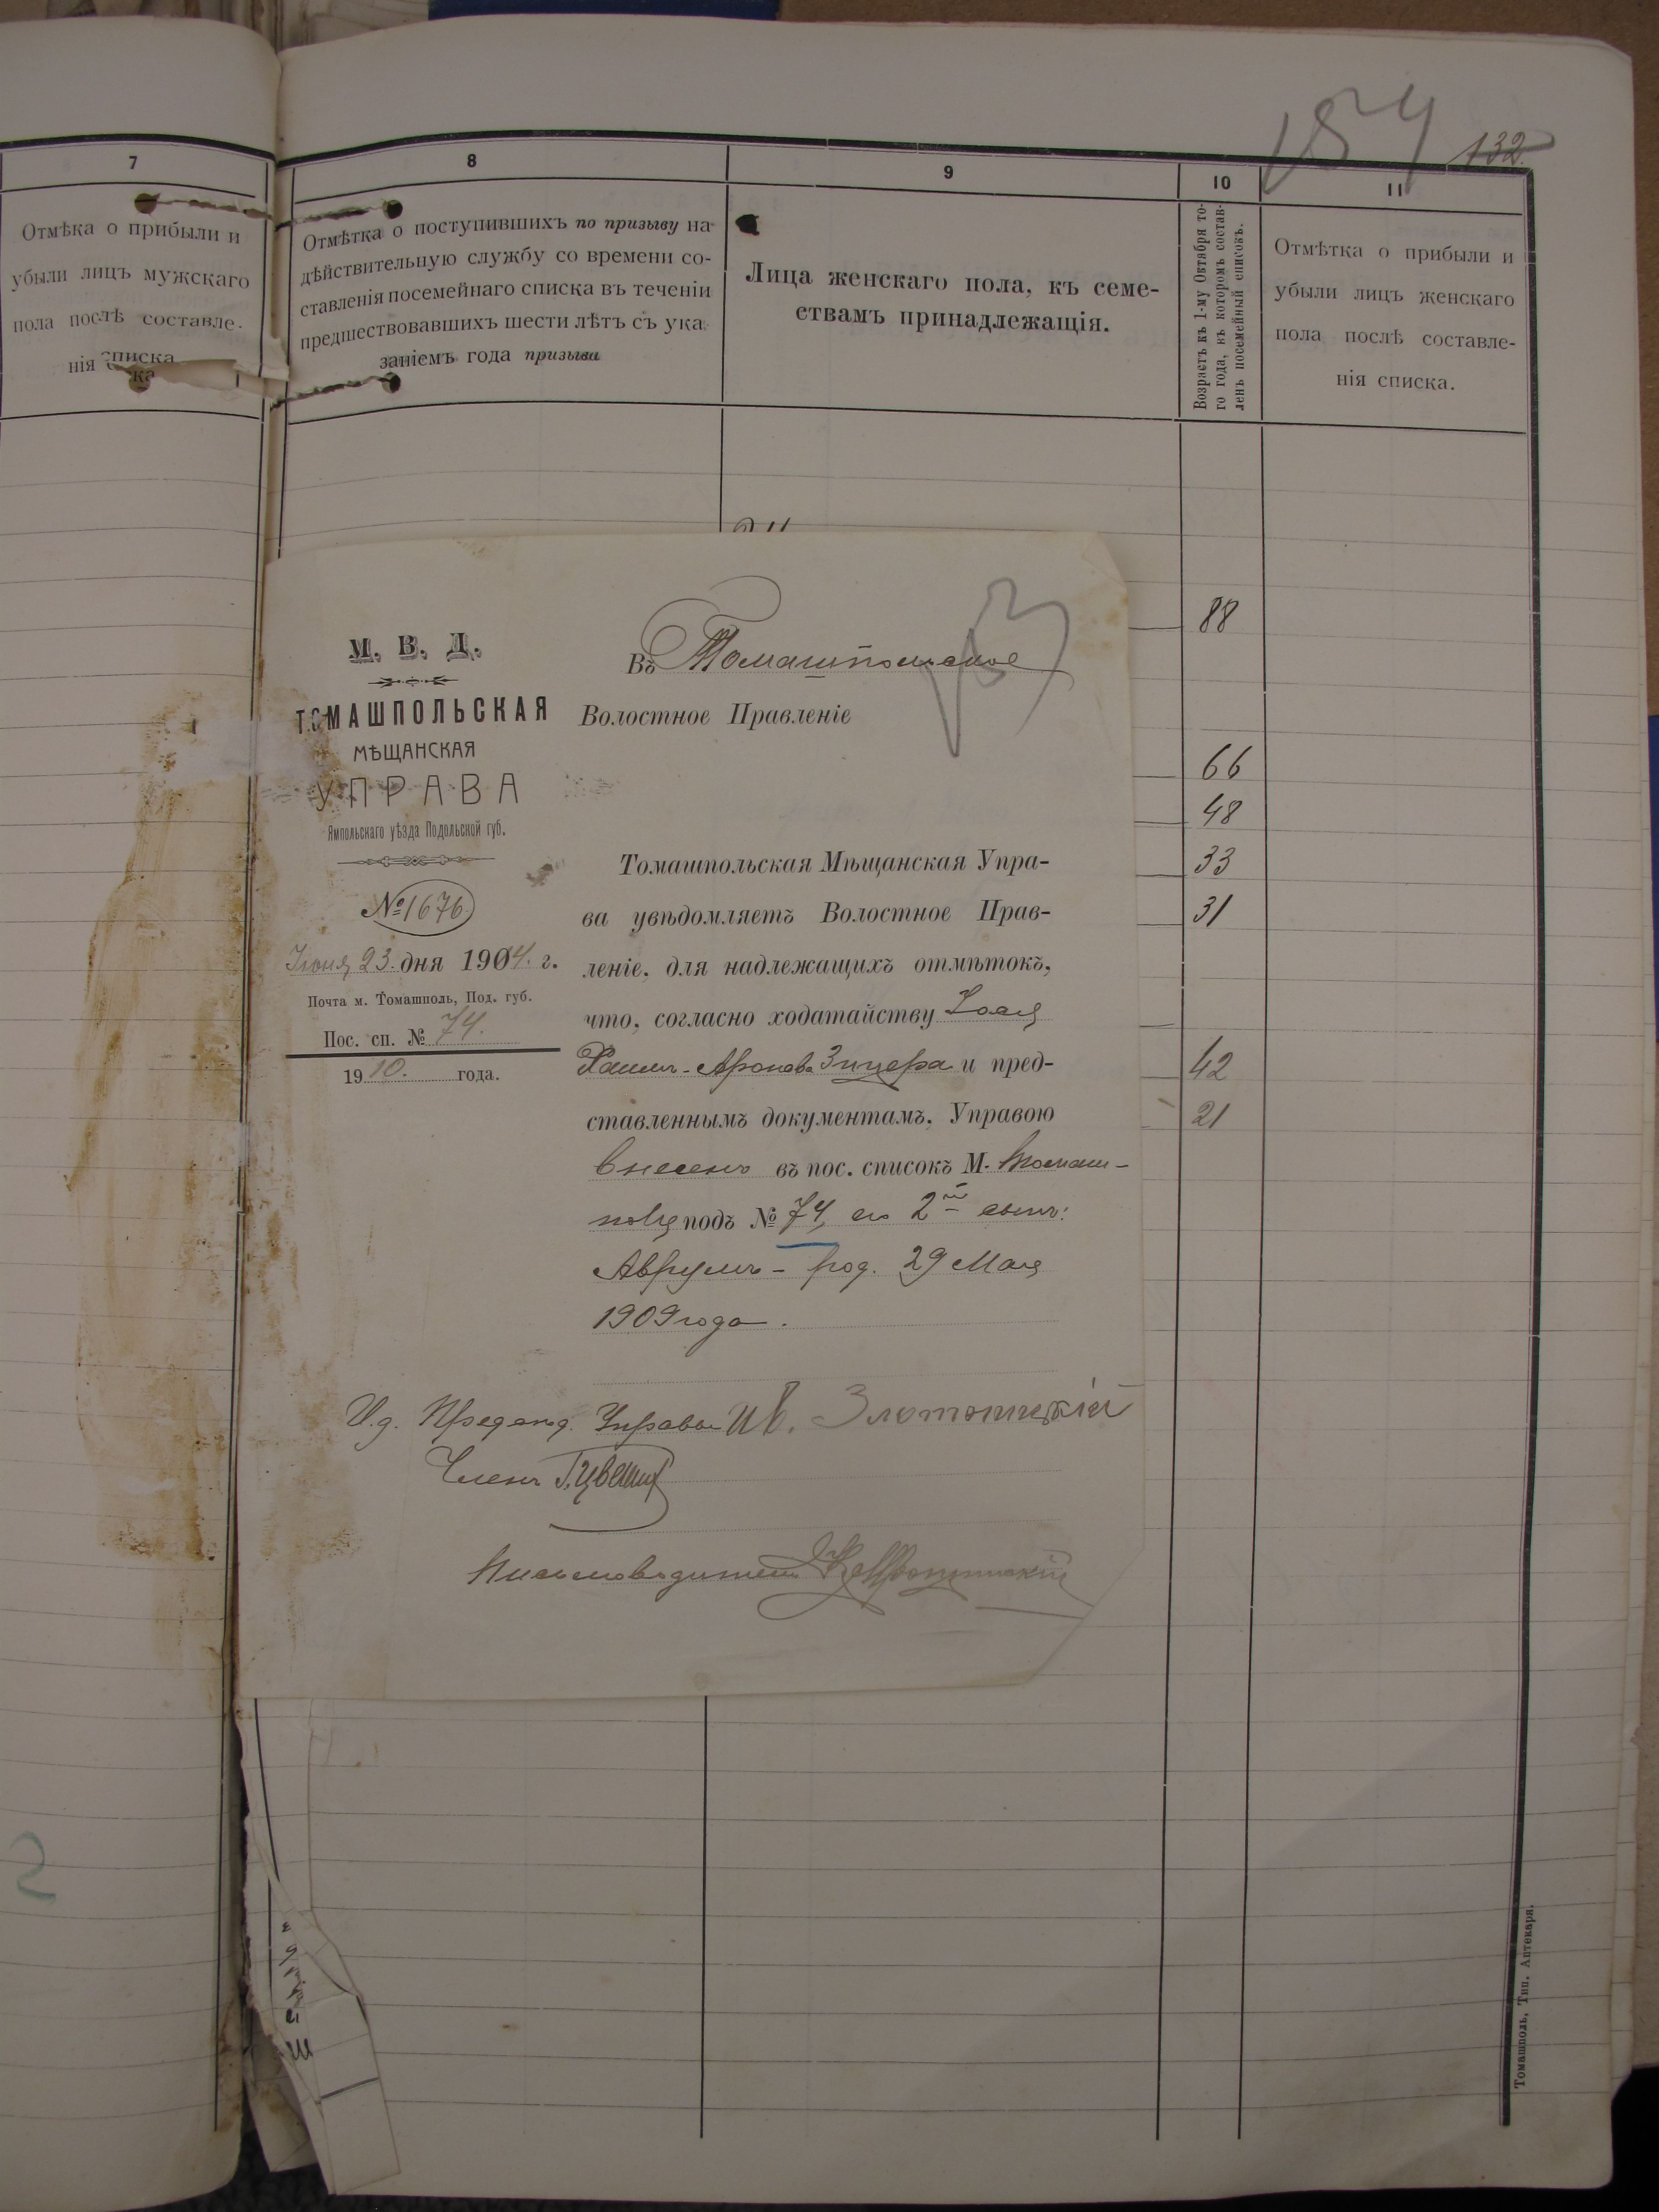 154
132.
7
Отмѣка о прибыли и
убыли лицъ мужскаго
пола послѣ составле.
нія списка
ка
8
Отмѣтка о поступившихъ по призыву на
дѣйствительную службу со времени со-
ставленія посемейнаго списка въ теченіи
предшествовавшихъ шести лѣтъ съ ука
заніемъ года призыва
9
Лица женскаго пола, къ семе-
ствамъ принадлежащія.
10
Возрастъ къ 1-му Октября то-
го года, въ которомъ состав-
ленъ посемейный списокъ.
11
Отмѣтка о прибыли и
убыли лицъ женскаго
пола послѣ составле-
нія списка.
88
66
48
33
31
42
21
153
М. В. Д.
ТОМАШПОЛЬСКАЯ
МѢЩАНСКАЯ
УПРАВА
Ямпольскаго уѣзда Подольской губ.
№ 1676.
Іюня 23. дня 1904. г.
Почта м. Томашполь, Под. губ.
Пос. сп. № 74.
1910. года.
Въ Томашпольское
Волостное Правленіе
Томашпольская Мѣщанская Упра-
ва увѣдомляетъ Волостное Прав-
леніе, для надлежащихъ отмѣтокъ,
что, согласно ходатайству
Аронова Зицера и пред-
ставленнымъ документамъ, Управою
внесенъ въ пос. списокъ М. Томаш-
поля подъ № 74, его 2й сынъ:
Аврумъ - род. 29 Мая
1909 года.
И.д. Предсѣд. Управы Ив.
Членъ Г. Цвейг
Письмоводитель
Томашполь, Тип. Аптекаря.